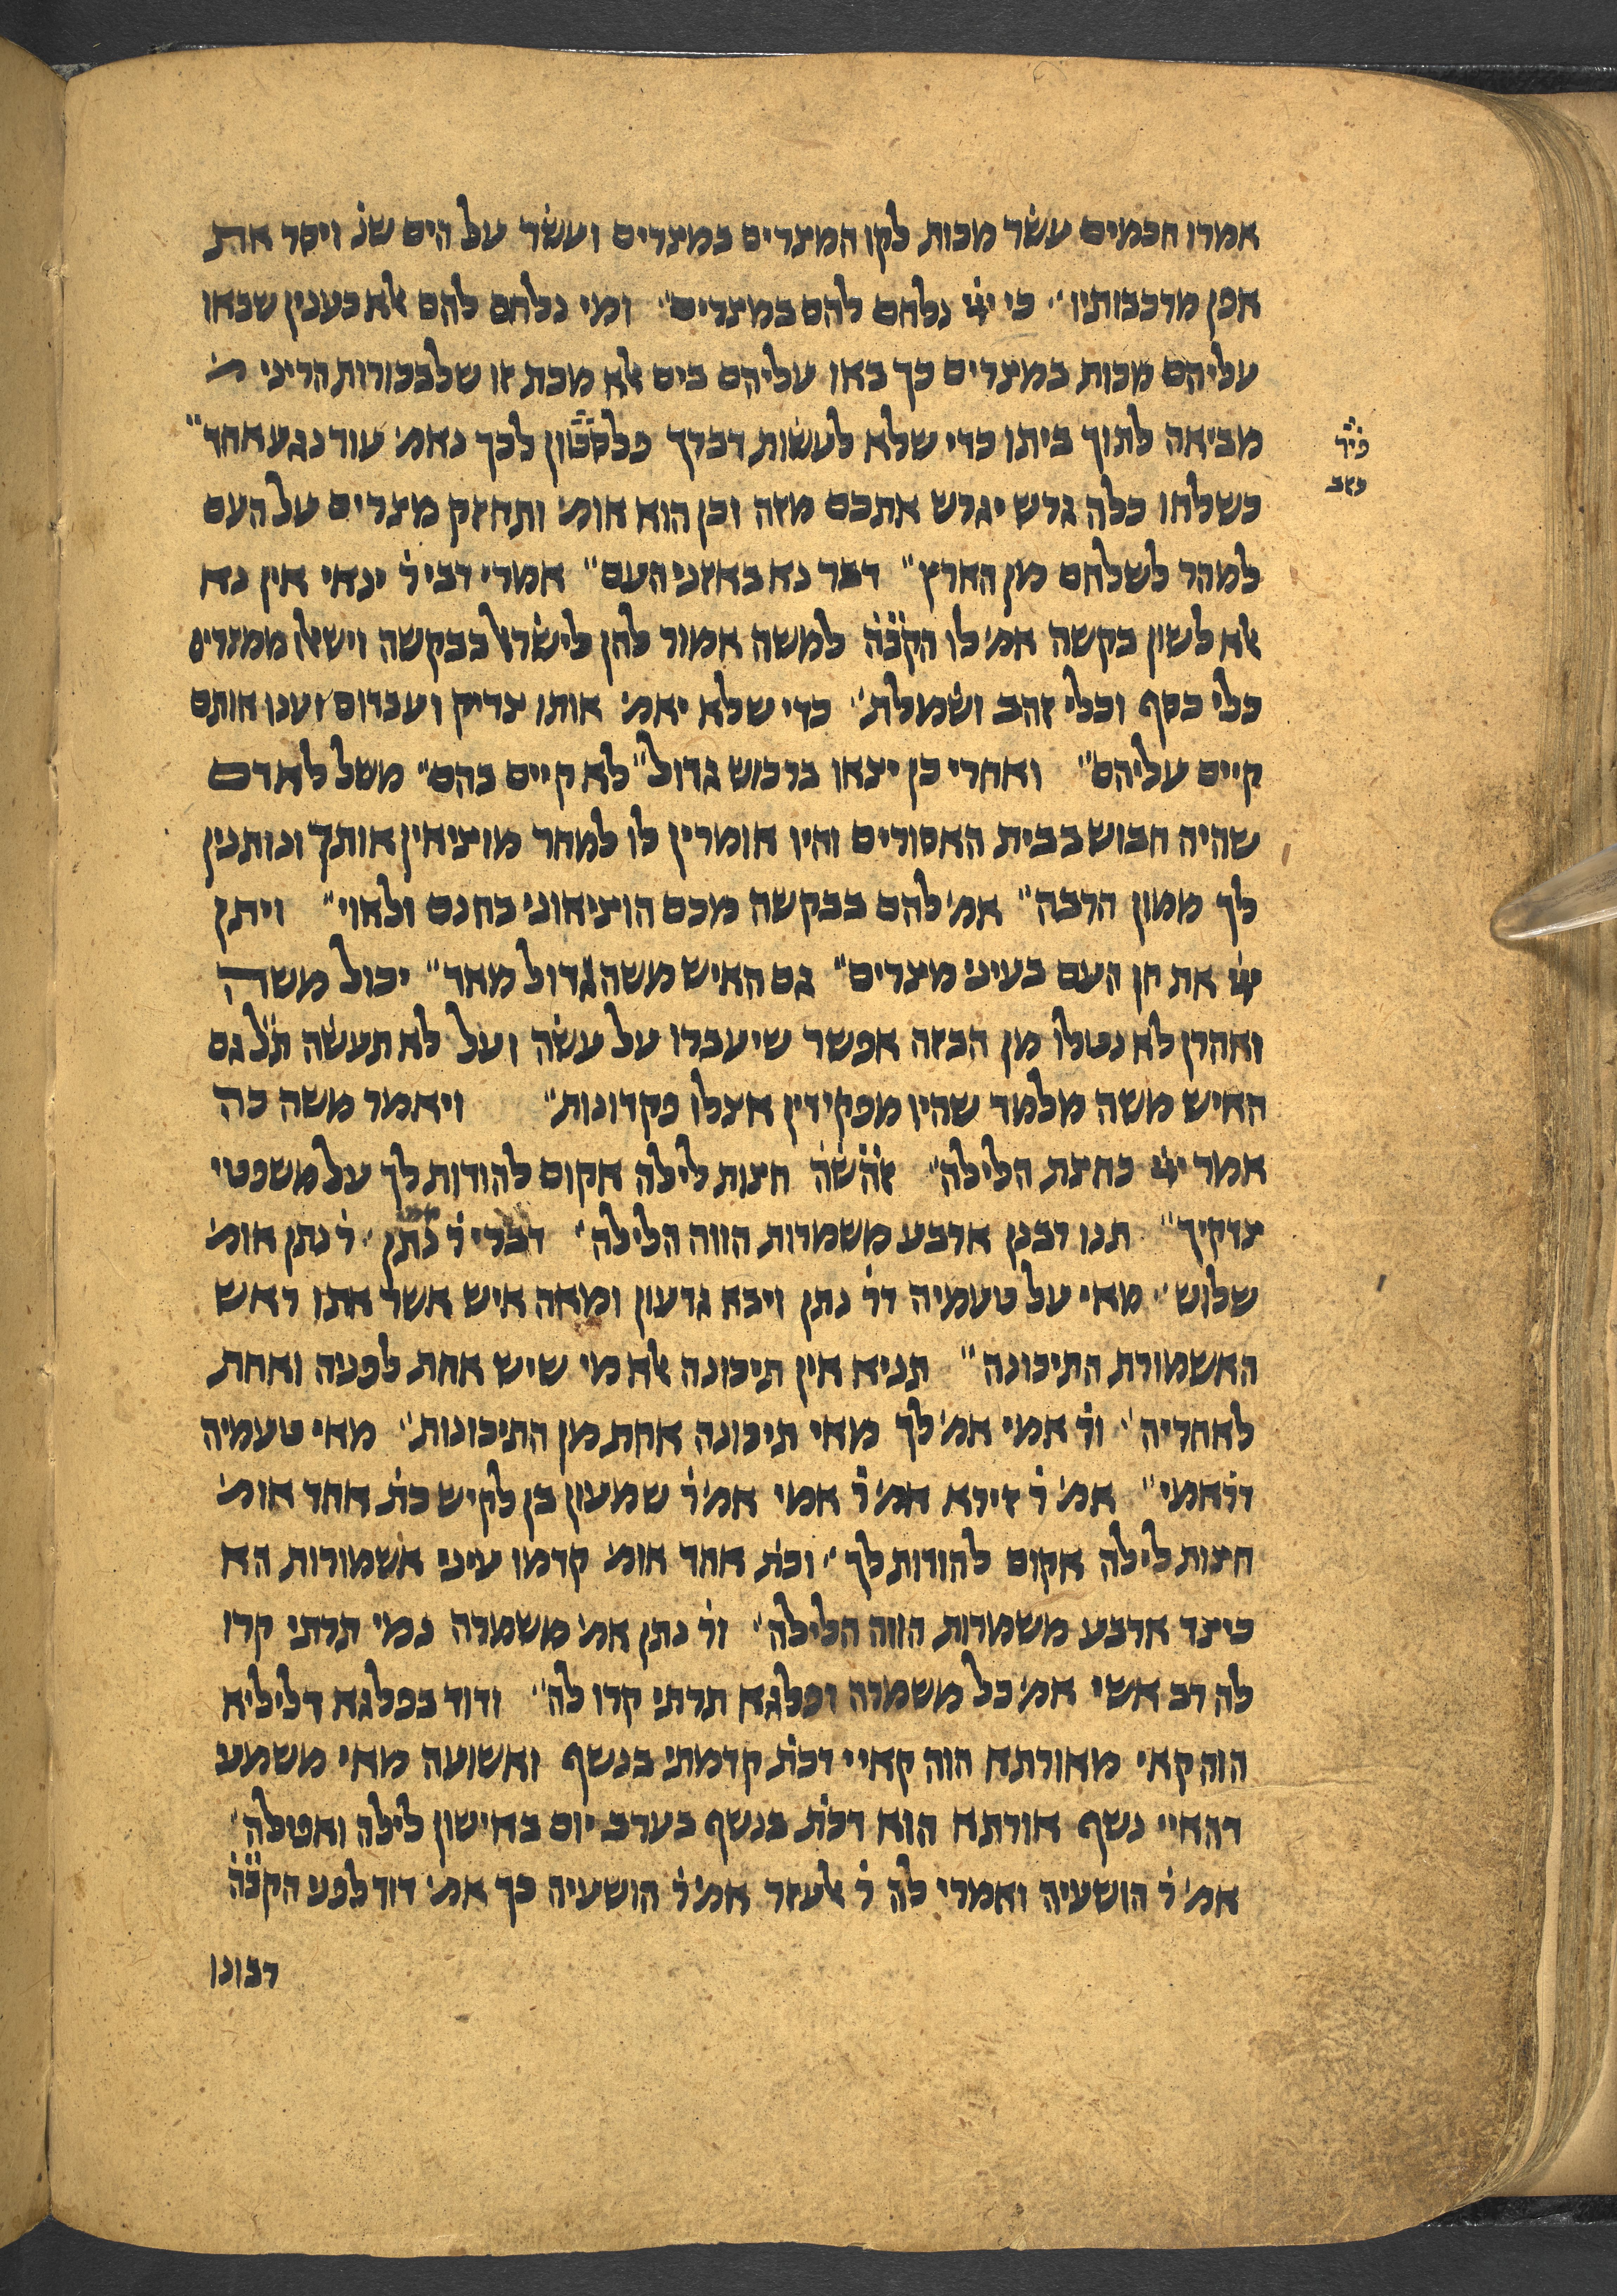 אמרו חכמים עשׂר מכות לקו המצרים במצרים ועשׂר על הים שנ׳ ויסר את
אפן מרכבותיו״ כי ייי נלחם להם במצרים״ ומי נלחם להם אלא כענין שבאו
עליהם מכות במצרים כך באו עליהם בים אלא מכת זו שלבכורות הריני
מביאה לתוך ביתן כדי שלא לעשׂות דברך פלסטון לכך נאמ׳ עוד נגע אחד״
כשלחו כלה גרש יגרש אתכם מזה וכן הוא אומ׳ ותחזק מצרים על העם
למהר לשלחם מן הארץ״ דבר נא באזני העם״ אמרי דבי ר׳ ינאי אין נא
אלא לשון בקשה אמ׳ לו הקבה למשה אמור להן לישׂראל בבקשה וישאלו ממצרים
כלי כסף וכלי זהב ושׂמלת״ כדי שלא יאמ׳ אותו צדיק ועבדום וענו אותם
קיים עליהם״ ואחרי כן יצאו ברכוש גדול״ לא קיים בהם״ משל לאדם
שהיה חבוש בבית האסורים והיו אומרין לו למחר מוציאין אותך ונותנין
לך ממון הרבה״ אמ׳ להם בבקשה מכם הוציאוני בחנם ולאוי״ ויתן
ייי את חן העם בעיני מצרים״ גם האיש משה גדול מאד״ יכול משה
ואהרן לא נטלו מן הבזה אפשר שיעברו על עשׂה ועל לא תעשׂה תל גם
האיש משה מלמד שהיו מפקידין אצלו פקדונות״ ויאמר משה כה
אמר ייי כחצת הלילה״ זהשה חצות לילה אקום להודות לך על משפטי
צדקיך״ תנו רבנן ארבע משמרות הווה הלילה״ דברי ר׳ נתן ר׳ נתן אומ׳
שלוש״ מאי על טעמיה דר׳ נתן ויבא גדעון ומאה איש אשר אתו ראש
האשמורת התיכונה״ תניא אין תיכונה אלא מי שיש אחת לפניה ואחת
לאחריה״ ור׳ אמי אמ׳ לך מאי תיכונה אחת מן התיכונות״ מאי טעמיה
דר׳ אמי״ אמ׳ ר׳ זירא אמ׳ ר׳ אמי אמ׳ ר׳ שמעון בן לקיש כת׳ אחד אומ׳
חצות לילה אקום להודות לך״ וכת׳ אחד אומ׳ קדמו עיני אשמורות הא
כיצד ארבע משמרות הווה הלילה״ ור׳ נתן אמ׳ משמרה נמי תרתי קרו
לה רב אשי אמ׳ כל משמרה ופלגא תרתי קרו לה״ ודוד בפלגא דליליא
הוה קאי מאורתא הוה קאיי דכת׳ קדמתי בנשף ואשועה מאי משמע
דהאיי נשף אורתא הוא דכת׳ בנשף בערב יום באישון לילה ואפלה״
אמ׳ ר׳ הושעיה ואמרי לה ר׳ אלעזר אמ׳ ר׳ הושעיה כך אמ׳ דוד לפני הקבה
רבונו